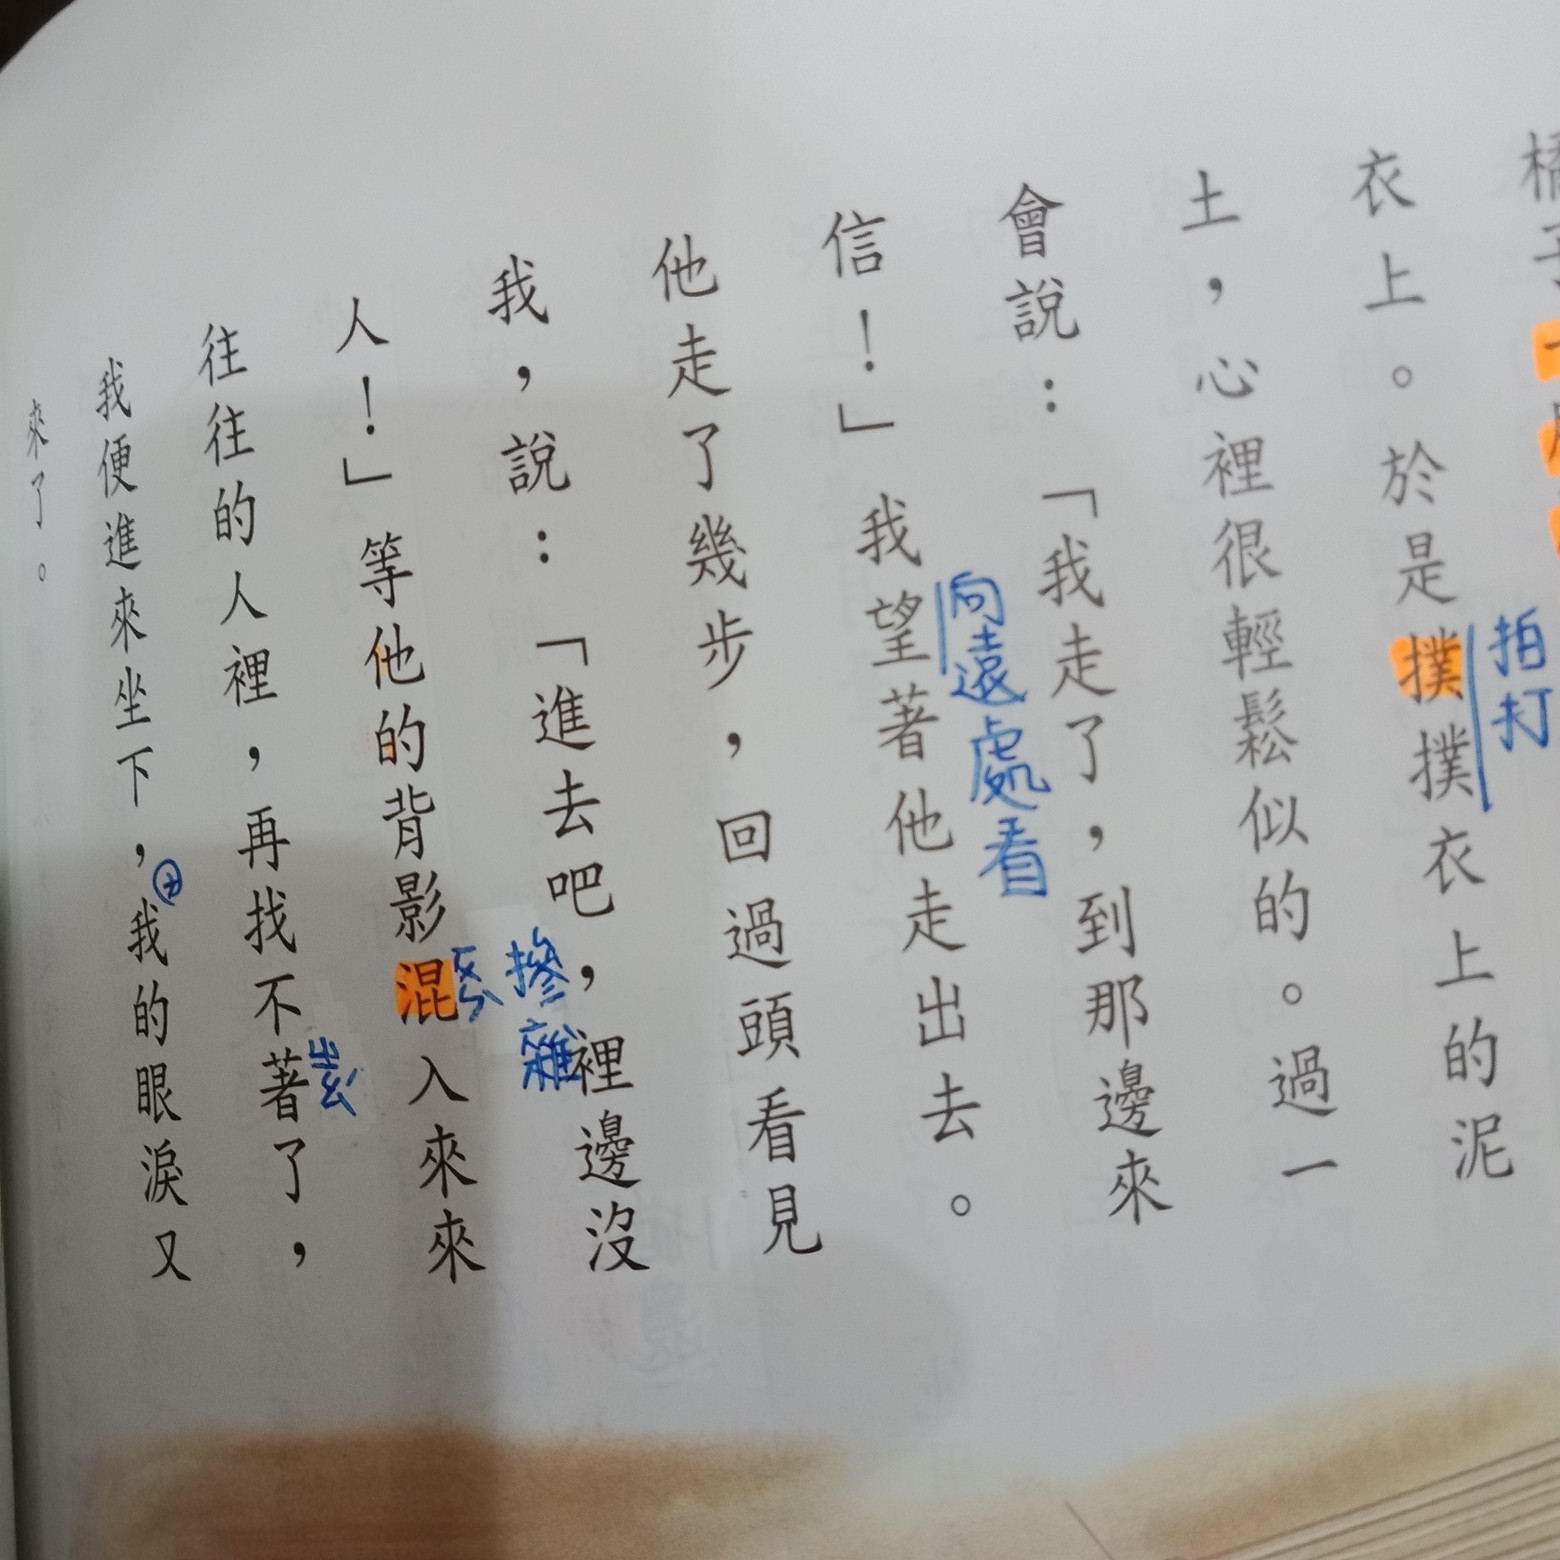 橘子
衣上。於是撲撲衣上的泥
拍打
土，心裡很輕鬆似的。過一
會說：「我走了，到那邊來
向遠處看
信！」我望著他走出去。
他走了幾步，回過頭看見
我，說：「進去吧，裡邊沒
摻雜
人！」等他的背影混入來來
往往的人裡，再找不著了，
我便進來坐下，我的眼淚又
來了。